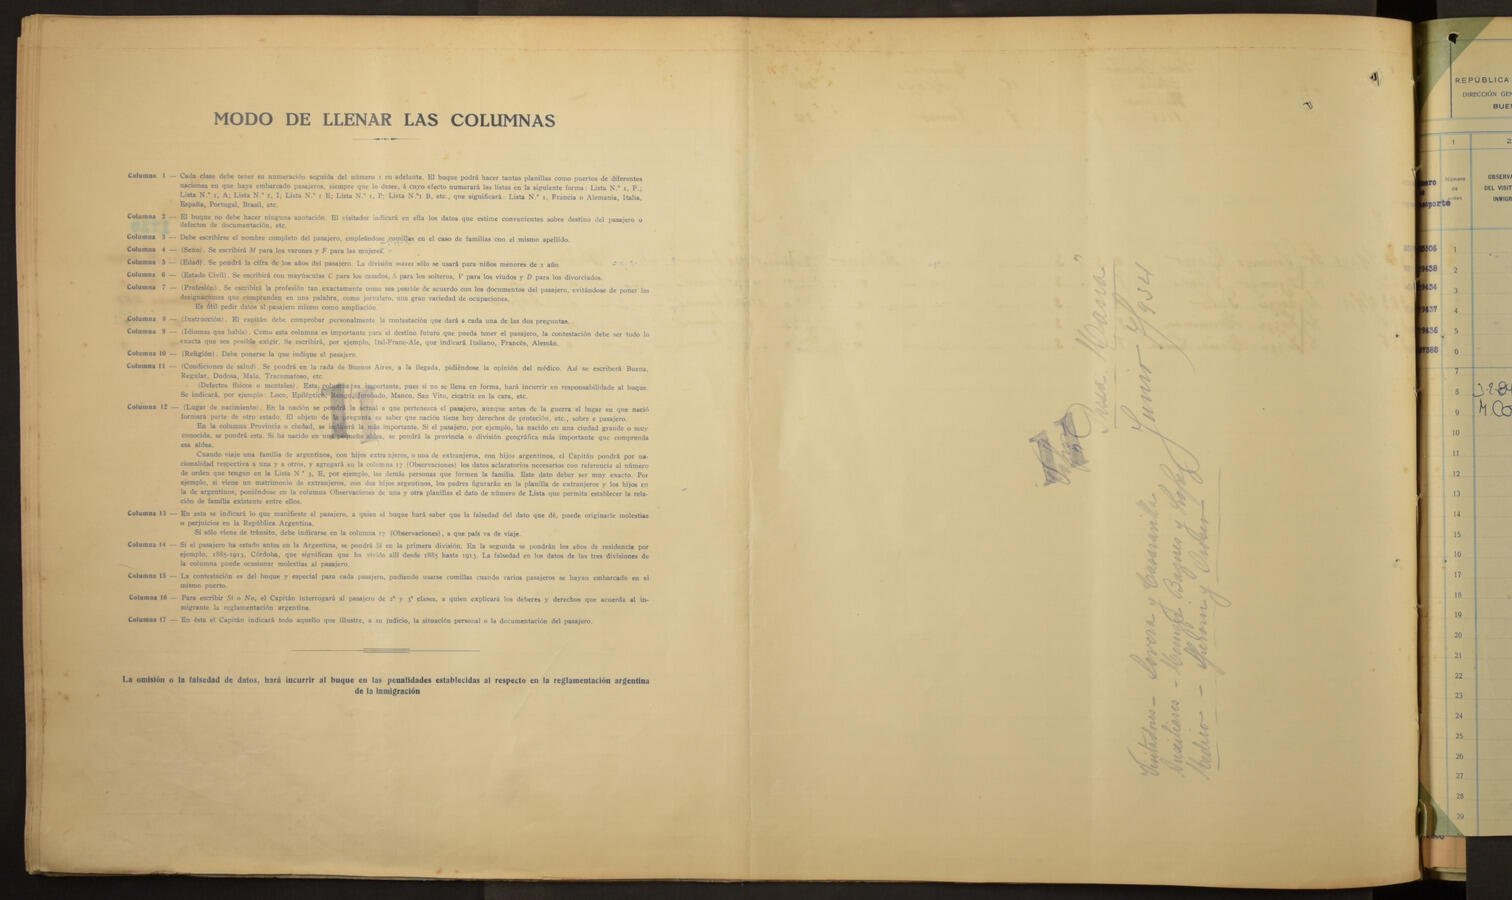 MODO DE LLENAR LAS COLUMNAS
Columna 1 — Cada clase debe tener su numeración seguida del número 1 en adelante. El buque podrá hacer tantas planillas como puertos de diferentes
naciones en que haya embarcado pasajeros, siempre que lo desee, á cuyo efecto numerará las listas en la siguiente forma: Lista N.º 1, F.;
Lista N.º 1, A; Lista N.º 1, I; Lista N.º 1 E; Lista N.º 1, P; Lista N.º1 B, etc., que significará: Lista N.º 1, Francia o Alemania, Italia,
España, Portugal, Brasil, etc.
Columna 2 — El buque no debe hacer ninguna anotación. El visitador indicará en ella los datos que estime convenientes sobre destino del pasajero o
defectos de documentación, etc.
Columna 3 — Debe escribirse el nombre completo del pasajero, empleándose comillas en el caso de familias con el mismo apellido.
Columna 4 — (Sexo). Se escribirá M para los varones y F para las mujeres.
Columna 5 — (Edad). Se pondrá la cifra de los años del pasajero. La división meses sólo se usará para niños menores de 1 año.
Columna 6 — (Estado Civil). Se escribirá con mayúsculas C para los casados, S para los solteros, V para los viudos y D para los divorciados.
Columna 7 — (Profesión). Se escribirá la profesión tan exactamente como sea posible de acuerdo con los documentos del pasajero, evitándose de poner las
designaciones que comprenden en una palabra, como jornalero, una gran variedad de ocupaciones.
Es útil pedir datos al pasajero mismo como ampliación.
Columna 8 — (Instrucción). El capitán debe comprobar personalmente la contestación que dará a cada una de las dos preguntas.
Columna 9 — (Idiomas que habla). Como esta columna es importante para el destino futuro que pueda tener el pasajero, la contestación debe ser todo lo
exacta que sea posible exigir. Se escribirá, por ejemplo, Ital-Franc-Ale, que indicará Italiano, Francés, Alemán.
Columna 10 — (Religión). Debe ponerse la que indique el pasajero.
Columna 11 — (Condiciones de salud). Se pondrá en la rada de Buenos Aires, a la llegada, pidiéndose la opinión del médico. Así se escribirá Buena,
Regular, Dudosa, Mala, Tracomatoso, etc.
(Defectos físicos o mentales). Esta columna es importante, pues si no se llena en forma, hará incurrir en responsabilidad al buque.
Se indicará, por ejemplo: Loco, Epiléptico, Rengo, Jorobado, Manco, San Vito, cicatriz en la cara, etc.
Columna 12 — (Lugar de nacimiento). En la nación se pondrá la actual a que pertenezca el pasajero, aunque antes de la guerra el lugar en que nació
formara parte de otro estado. El objeto de la pregunta es saber que nación tiene hoy derechos de proteción, etc., sobre e pasajero.
En la columna Provincia o ciudad, se indicará la más importante. Si el pasajero, por ejemplo, ha nacido en una ciudad grande o muy
conocida, se pondrá esta. Si ha nacido en una pequeña aldea, se pondrá la provincia o división geográfica más importante que comprenda
esa aldea.
Cuando viaje una familia de argentinos, con hijos extranjeros, o una de extranjeros, con hijos argentinos, el Capitán pondrá por na-
cionalidad respectiva a una y a otros, y agregará en la columna 17 (Observaciones) los datos aclaratorios necesarios con referencia al número
de orden que tengan en la Lista N.º 3, E, por ejemplo, las demás personas que formen la familia. Este dato deber ser muy exacto. Por
ejemplo, si viene un matrimonio de extranjeros, con dos hijos argentinos, los padres figurarán en la planilla de extranjeros y los hijos en
la de argentinos, poniéndose en la columna Observaciones de una y otra planillas el dato de número de Lista que permita establecer la rela-
ción de familia existente entre ellos.
Columna 13 — En esta se indicará lo que manifieste el pasajero, a quien el buque hará saber que la falsedad del dato que dé, puede originarle molestias
o perjuicios en la República Argentina.
Si sólo viene de tránsito, debe indicarse en la columna 17 (Observaciones), a que país va de viaje.
Columna 14 — Si el pasajero ha estado antes en la Argentina, se pondrá Sí en la primera división. En la segunda se pondrán los años de residencia por
ejemplo, 1885-1913, Córdoba, que significan que ha vivido allí desde 1885 hasta 1913. La falsedad en los datos de las tres divisiones de
la columna puede ocasionar molestias al pasajero.
Columna 15 — La contestación es del buque y especial para cada pasajero, pudiendo usarse comillas cuando varios pasajeros se hayan embarcado en el
mismo puerto.
Columna 16 — Para escribir Sí o No, el Capitán interrogará al pasajero de 2ª y 3ª clases, a quien explicará los deberes y derechos que acuerda al in-
migrante la reglamentación argentina.
Columna 17 — En ésta el Capitán indicará todo aquello que illustre, a su juicio, la situación personal o la documentación del pasajero.
La omisión o la falsedad de datos, hará incurrir al buque en las penalidades establecidas al respecto en la reglamentación argentina
de la inmigración
Maria"
Junio 7/934
Visitadores -
Auxiliares -
Medico -
REPÚBLICA
DIRECCIÓN GE
BUE
1 2
Número
de
orden
OBSERVA
DEL VISIT
INMIGR
1
2
3
4
5
6
7
8
9
10
11
12
13
14
15
16
17
18
19
20
21
22
23
24
25
26
27
28
29